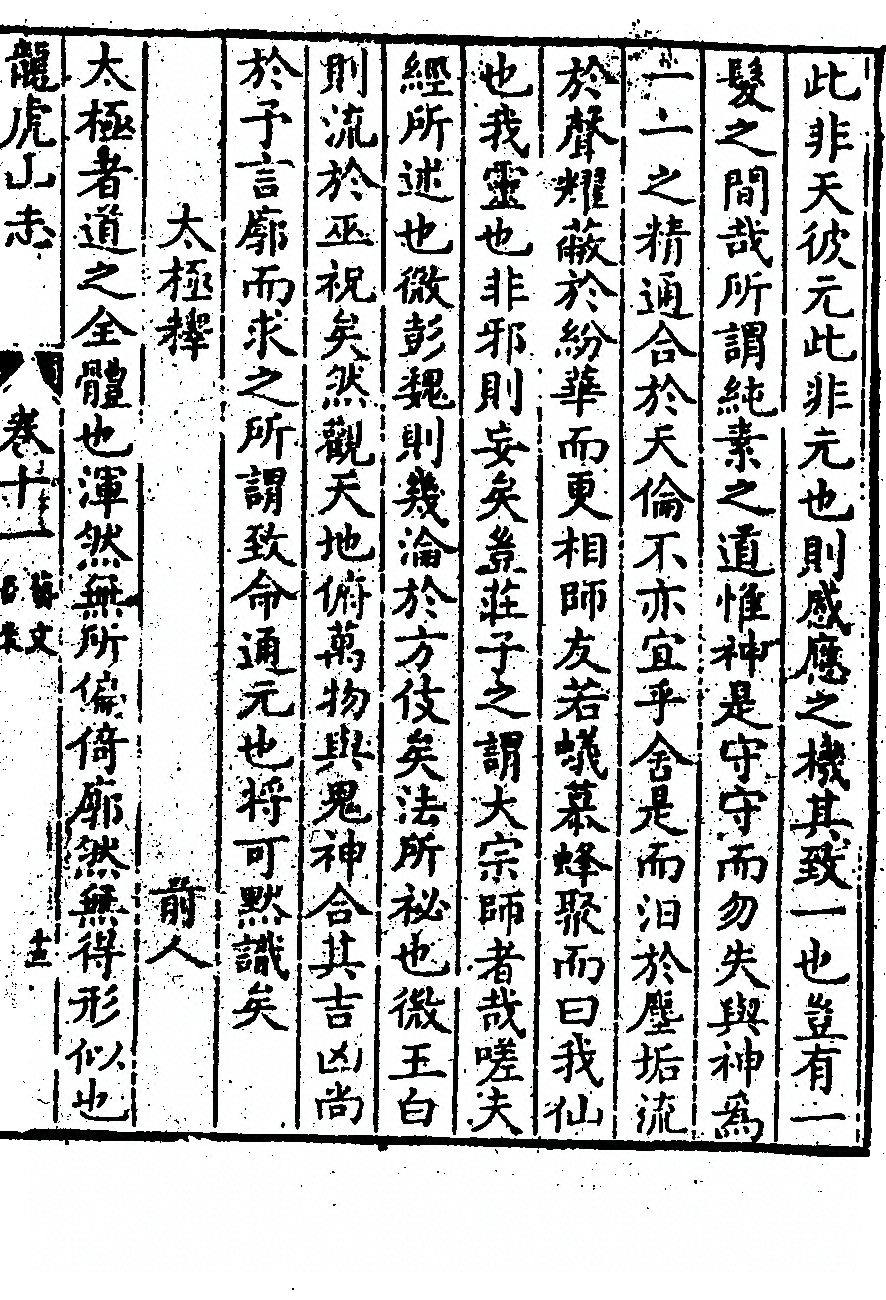 此非天彼元此非元也則感應之機其致一也豈有一
髮之間哉所謂純素之道惟神是守守而勿失與神爲
一一之精通合於天倫不亦宜乎舍是而汨於塵垢流
於聲耀蔽於紛華而更相師友若蟻慕蜂聚而曰我仙
也我靈也非邪則妄矣豈莊子之謂大宗師者哉嗟夫
經所述也微彭魏則幾淪於方伎矣法所祕也微王白
則流於巫祝矣然觀天地俯萬物與鬼神合其吉凶尚
於予言廓而求之所謂致命通元也將可默識矣
太極釋 前人
太極者道之全體也渾然無所偏倚廓然無得形似也
龍虎山志 卷十一 藝文 十三